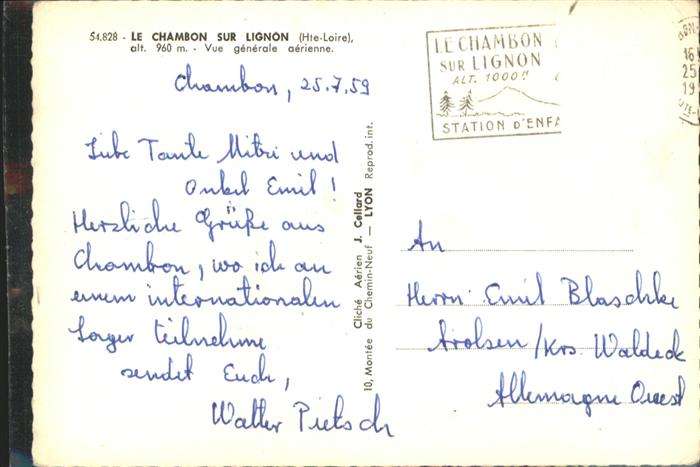 54.828 - LE CHAMBON SUR LIGNON (Hte-Loire),
alt. 960 m. - Vue générale aérienne.
Chambon, 25.7.59
Liebe Tante Mitzi und
Onkel Emil!
Herzliche Grüße aus
Chambon, wo ich an
einem internationalen
Lager teilnehme
sendet Euch,
Walter Pietsch
Cliché Aérien J. Cellard
10, Montée du Chemin-Neuf — LYON Reprod. int.
LE CHAMBON
SUR LIGNON
ALT. 1000m
STATION D'ENFA
16
25
19
An
Herrn Emil Blaschke
Arolsen/Krs. Waldeck
Allemagne Ouest